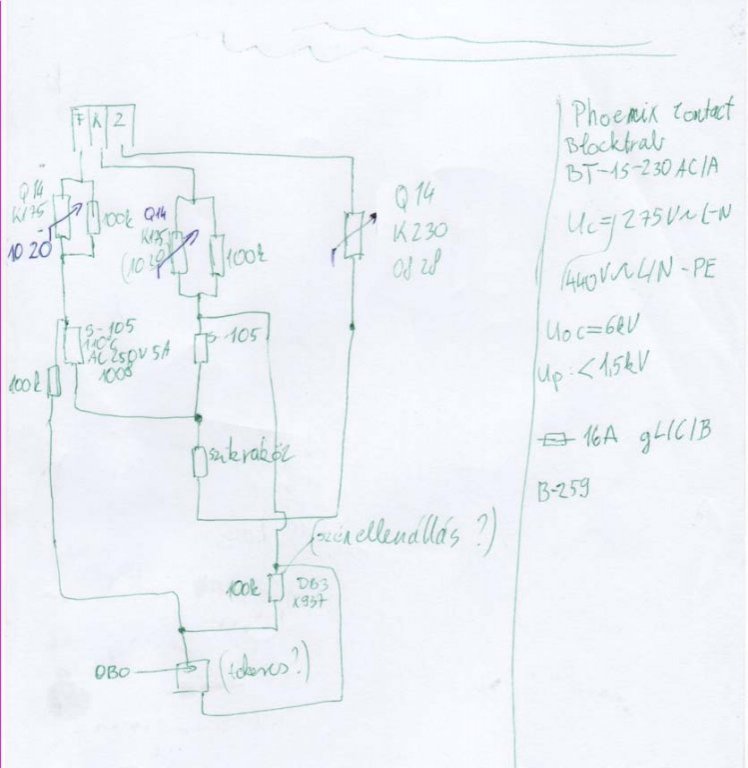 F K Z
Q14
K175
1020
100k
Q14
K175
(1020
100k
Q14
K230
0828
S-105
110°
AC250V 5A
1008
S-105
100k
szikraköz
(szénellenállás ?)
100k
DB3
K937
DB0
(tekercs?)
Phoenix Contact
Blocktrab
BT-1S-230AC/A
Uc= 275V~ L-N
440V~ L/N-PE
Uoc=6kV
Up:<1,5kV
16A gL/C/B
B-259